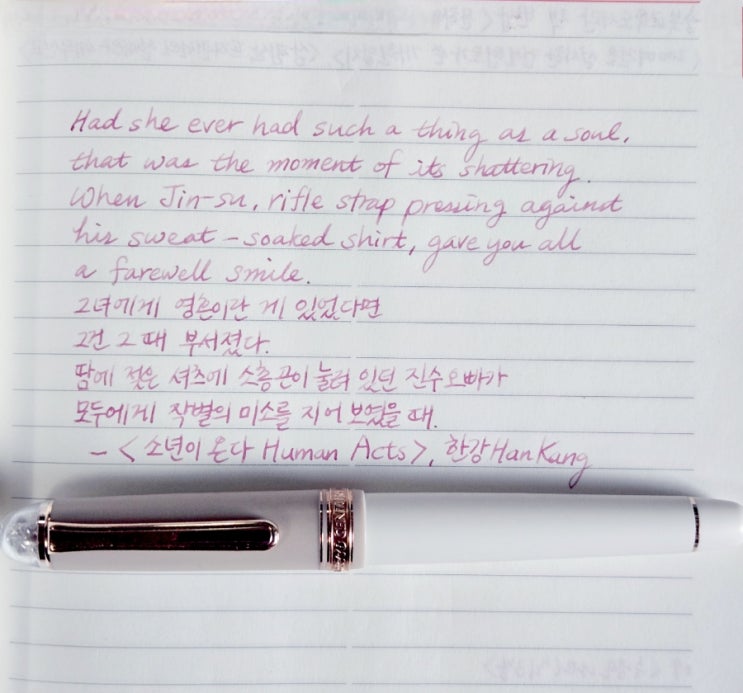 Had she ever had such a thing as a soul,
that was the moment of its shattering.
When Jin-su, rifle strap pressing against
his sweat-soaked shirt, gave you all
a farewell smile.
그녀에게 영혼이란 게 있었다면
그건 그 때 부서졌다.
땀에 젖은 셔츠에 소총 끈이 눌려 있던 진수오빠가
모두에게 작별의 미소를 지어 보였을 때.
- <소년이 온다 Human Acts>, 한강 Han Kang
CENTURY